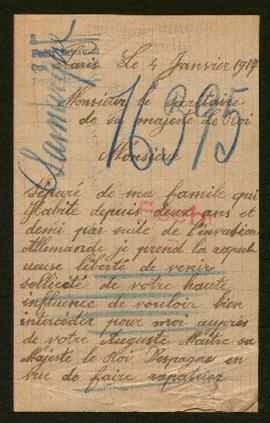 Paris Le 4 Janvier 1917
16395
Monsieur le secretaire
de sa majesté le Roi
Monsieur
Séparé de ma famile qui
habite depuis ans et
demi par suite de l'invasion
Allemande je prend la respect-
ueuse liberté de venir
sollicité de votre haute
influence de vouloir bien
intercéder pour moi auprès
de votre Auguste Maître sa
Majesté le Roi D'espagne en
vue de faire rapatrier